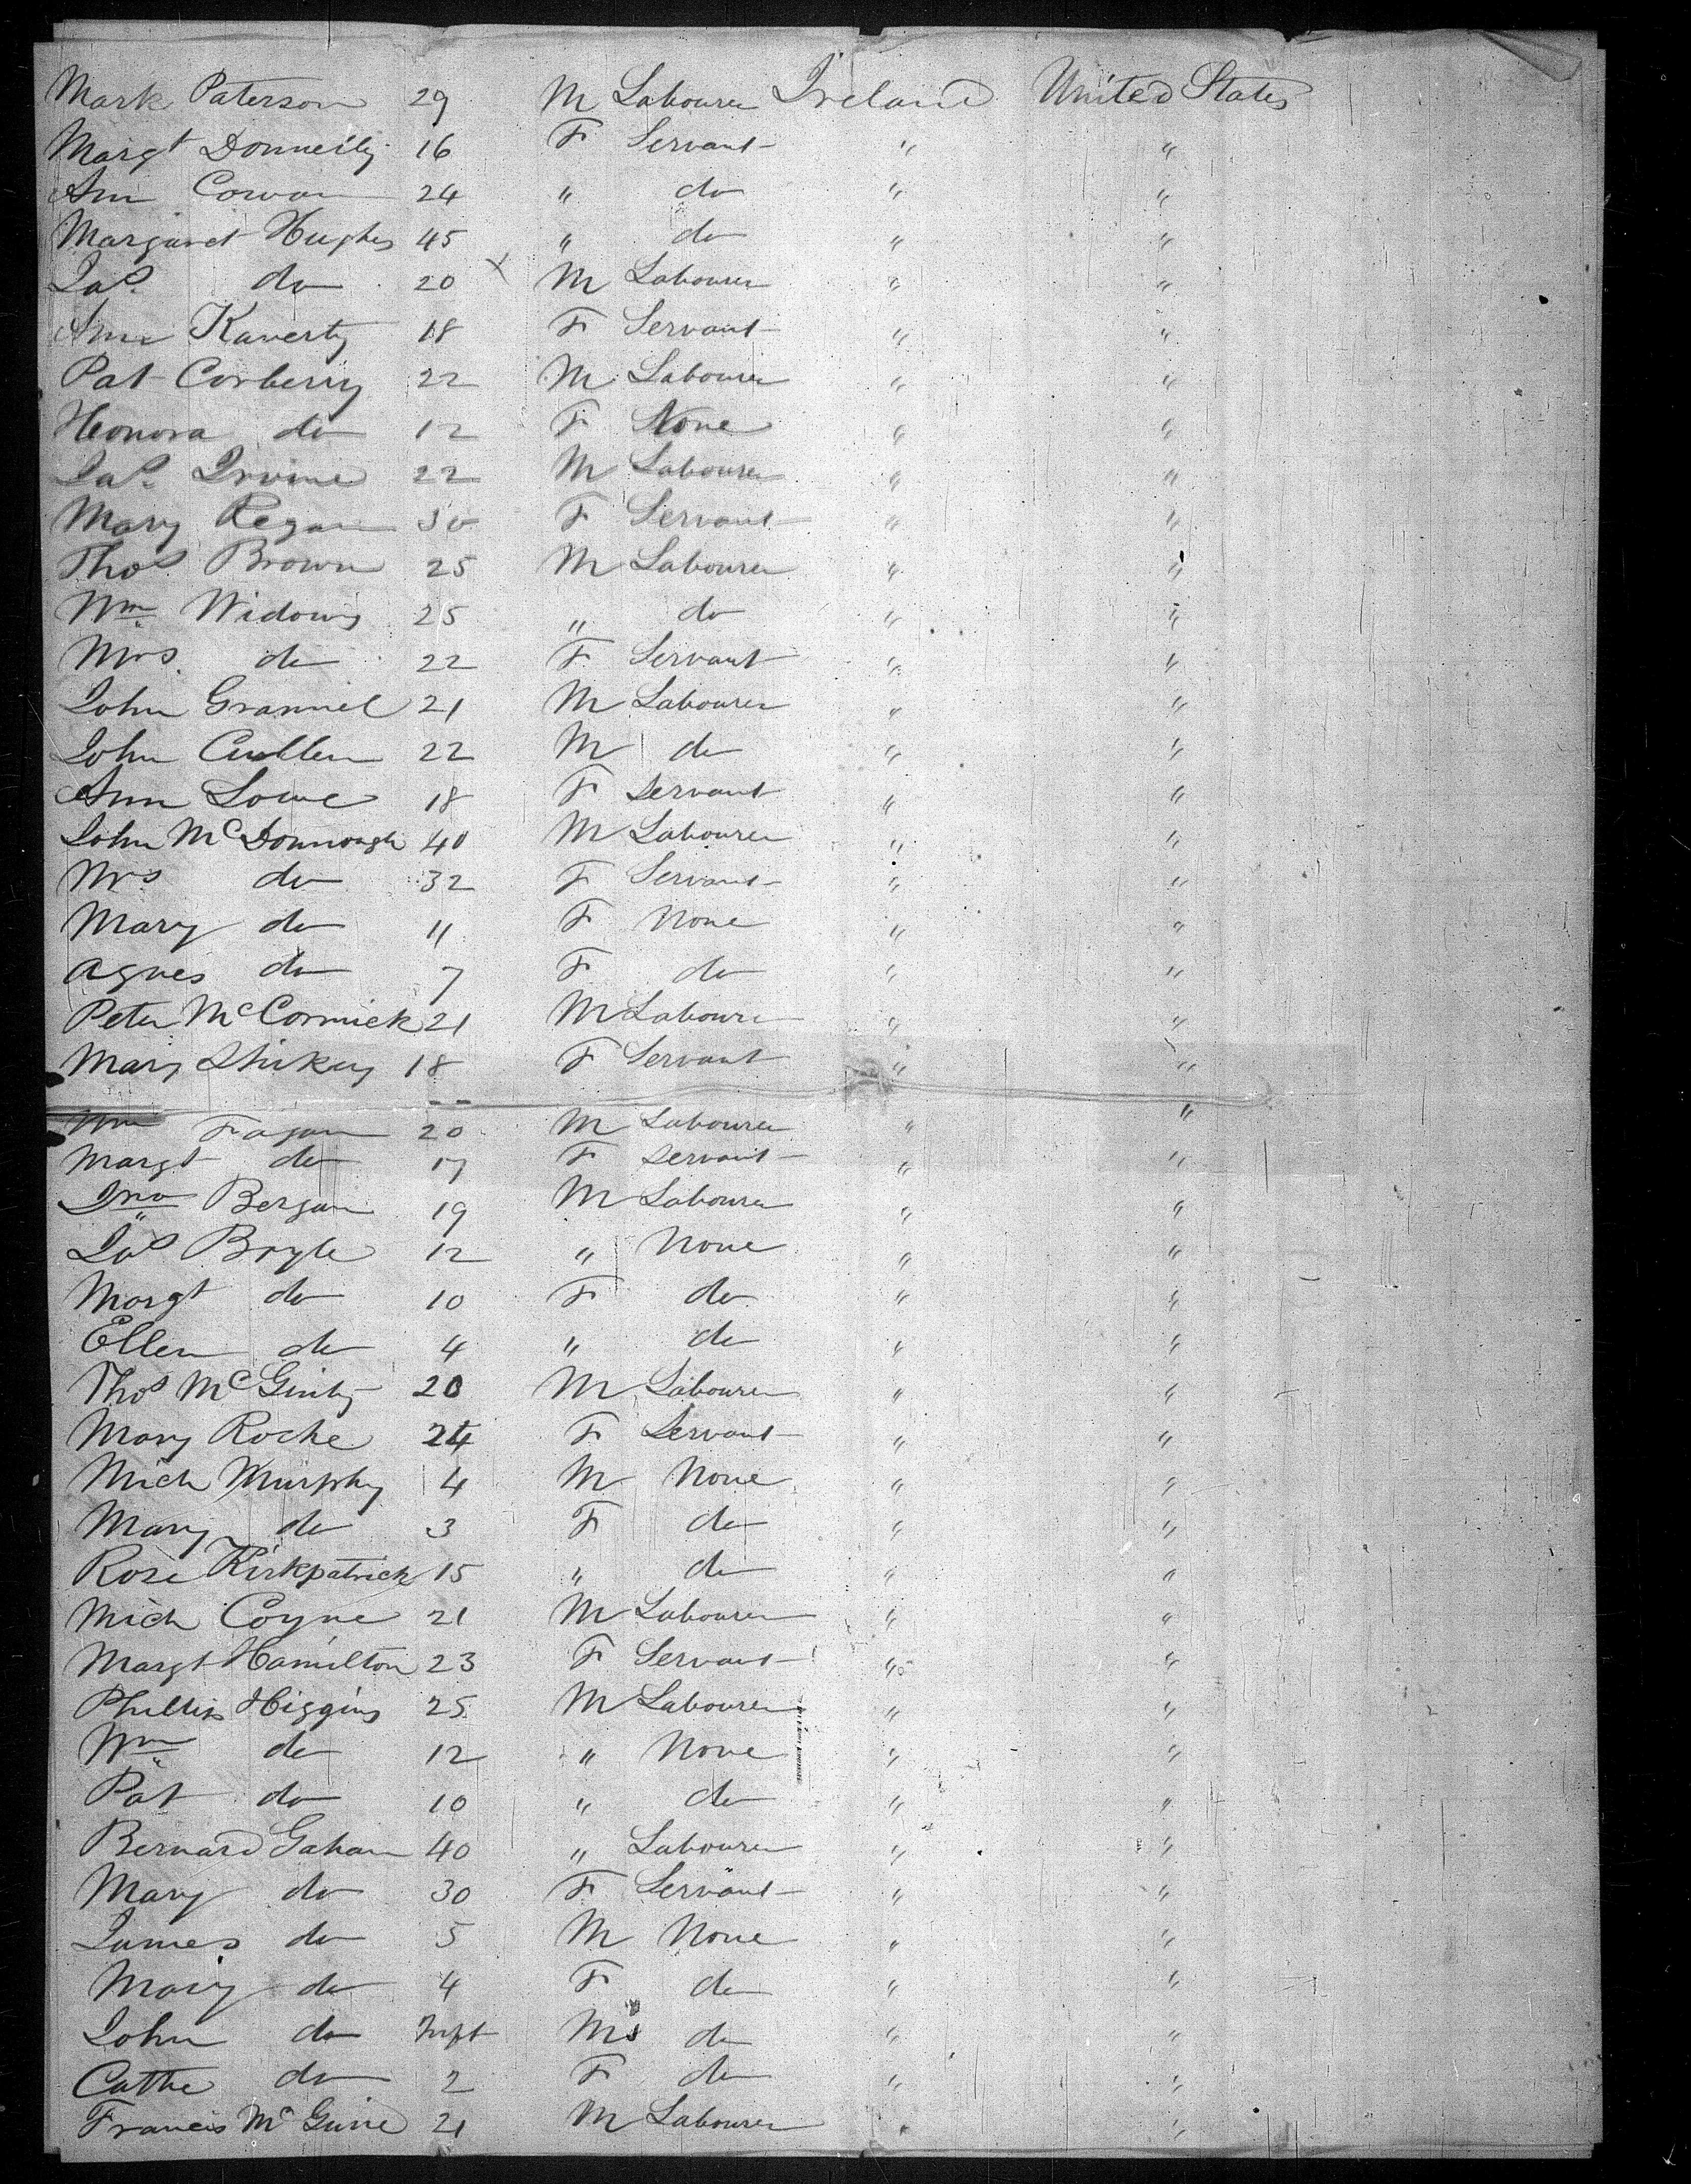 Mark Paterson 29 M Labourer Ireland United States
Margt Donnelly 16 F Servant " "
Ann Cowan 24 " do " "
Margaret Hughes 45 " do " "
Jas do 20 x M Labourer " "
Ann Kaverty 18 F Servant " "
Pat Corberry 22 M Labourer " "
Honora do 12 F None " "
Jas Irvine 22 M Labourer " "
Mary Regan 30 F Servant " "
Thos Brown 25 M Labourer " "
Wm Widows 25 " do " "
Mrs do 22 F Servant " "
John Grannel 21 M Labourer " "
John Cullen 22 M do " "
Ann Lowe 18 F Servant " "
John McDonnough 40 M Labourer " "
Mrs do 32 F Servant " "
Mary do 11 F None " "
Agnes do 7 F do " "
Peter McCormick 21 M Labourer " "
Mary 18 F Servant " "
Wm Fagan 20 M Labourer " "
Margt do 17 F Servant " "
Jno Bergan 19 M Labourer " "
Jas Boyle 12 " None " "
Margt do 10 F do " "
Ellen do 4 " do " "
Thos McGinty 20 M Labourer " "
Mary Roche 24 F Servant " "
Mich Murphy 4 M None " "
Mary do 3 F do " "
Rose Kirkpatrick 15 " do " "
Mich Coyne 21 M Labourer " "
Margt Hamilton 23 F Servant " "
Phillip Higgins 25 M Labourer " "
Wm do 12 " None " "
Pat do 10 " do " "
Bernard Gahan 40 " Labourer " "
Mary do 30 F Servant " "
James do 5 M None " "
Mary do 4 F do " "
John do Inft M do " "
Cathe do 2 F do " "
Francis McGuire 21 M Labourer " "